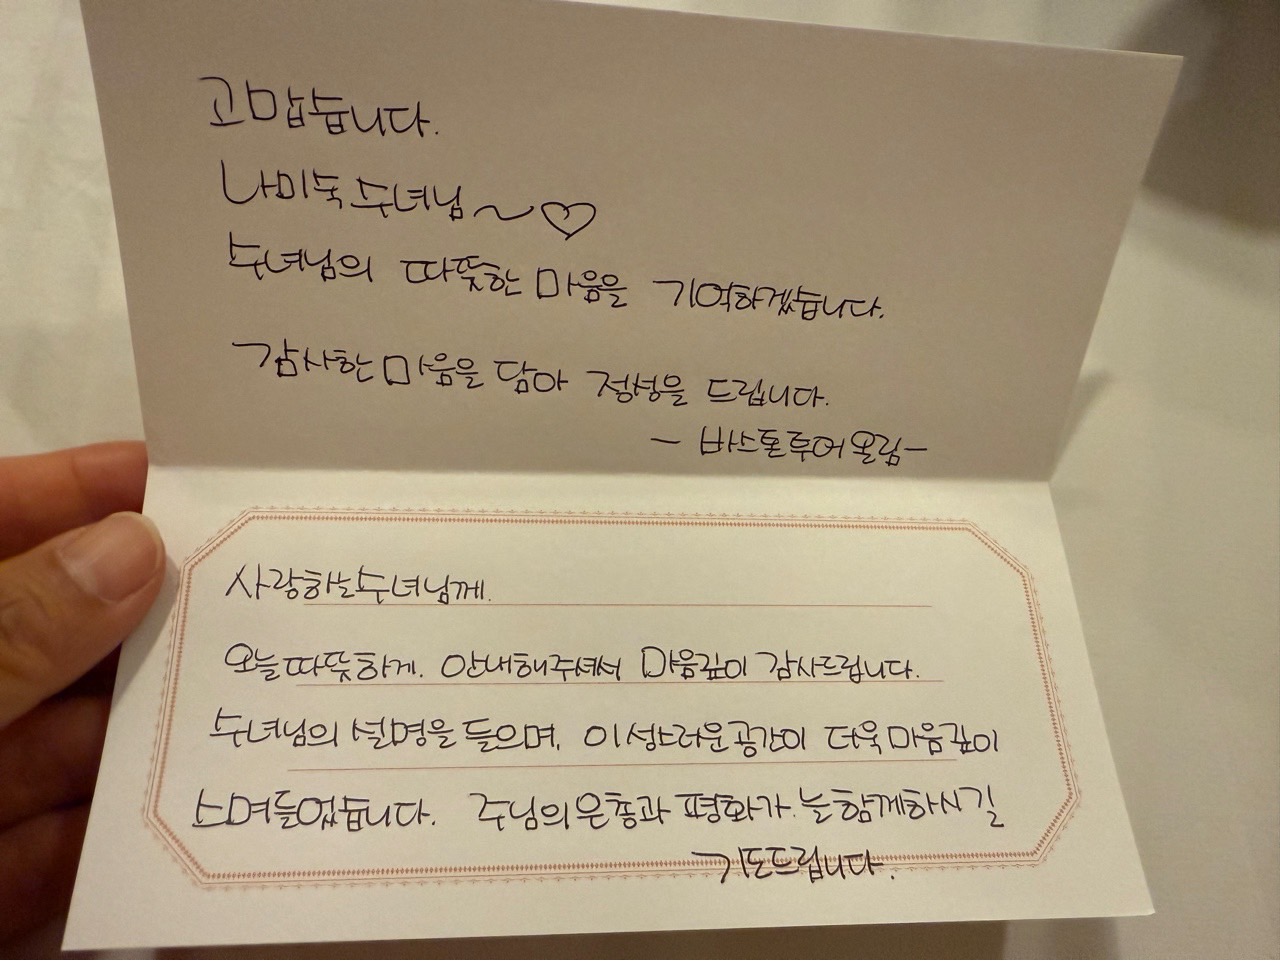 고맙습니다.
나미숙 수녀님~♡
수녀님의 따뜻한 마음을 기억하겠습니다.
감사한 마음을 담아 정성을 드립니다.
- 바스톤투어올림-
사랑하는수녀님께.
오늘따뜻하게. 안내해주셔서 마음깊이 감사드립니다.
수녀님의 설명을 들으며, 이성스러운공간이 더욱 마음깊이
스며들었습니다. 주님의은총과 평화가. 늘함께하시길
기도드립니다.